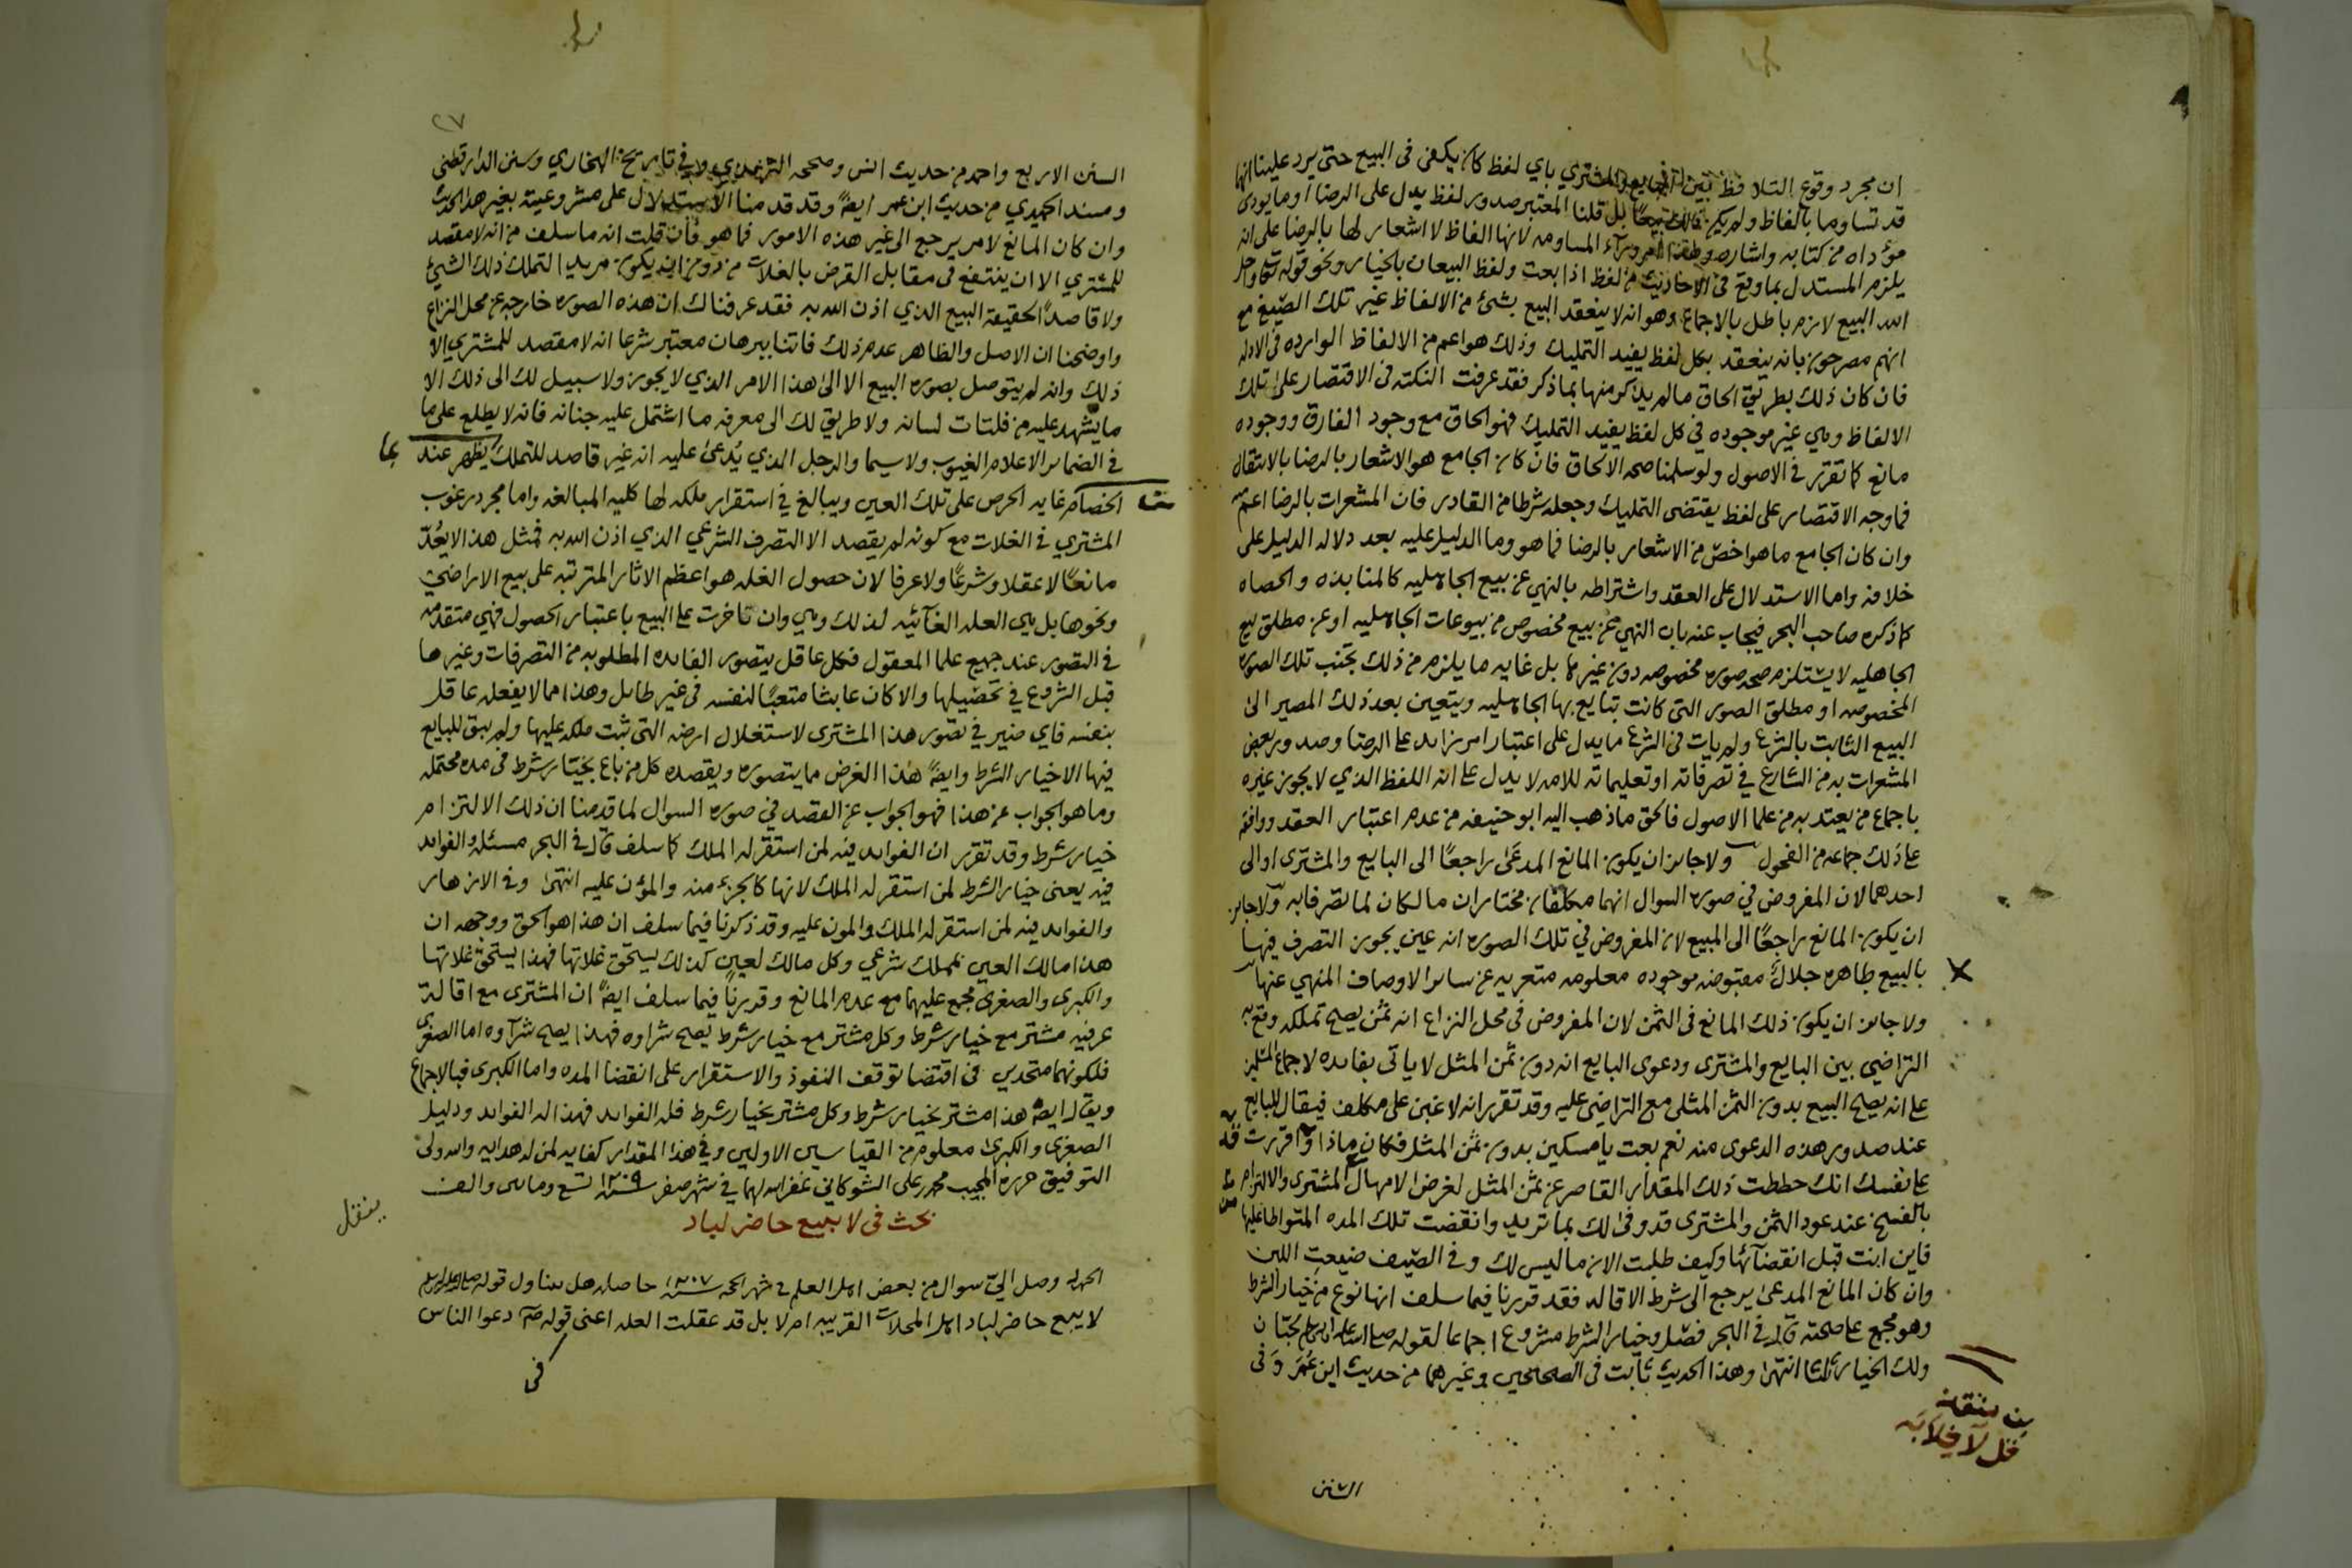 ان مجرد وقوع التلافظ بين البايع والمشتري باي لفظ كان يكفي في البيع حتى يرد علينا انها
قد تساوما بالفاظ ولم يكن ذلك بيعًا بل قلنا المعتبر صدور لفظ يدل على الرضا او ما يودي
مؤداه من كتابه واشاره وهذا امر ورآء المساومه لانها الفاظ لا اشعار لها بالرضا على انه
يلزم المستدل بما وقع في الاحاديث من لفظ اذا بعت ولفظ البيعان بالخيار ونحو قوله تعا واحل
الله البيع لازم باطل بالاجماع وهو انه لا ينعقد البيع بشئ من الالفاظ غير تلك الصيغ مع
انهم مصرحون بانه ينعقد بكل لفظ يفيد التمليك وذلك هو اعم من الالفاظ الوارده في الادله
فان كان ذلك بطريق الحاق مالم يذكر منها بما ذكر فقد عرفت النكته في الاقتصار على تلك
الالفاظ وهي غير موجوده في كل لفظ يفيد التمليك فهو الحاق مع وجود الفارق ووجوده
مانع كما تقرر في الاصول ولو سلمنا صحه الالحاق فان كان الجامع هو الاشعار بالرضا بالانتقال
فما وجه الاقتصار على لفظ يقتضى التمليك وجعله شرطا من القادر فان المشعرات بالرضا اعم منه
وان كان الجامع ما هو اخص من الاشعار بالرضا فما هو وما الدليل عليه بعد دلاله الدليل على
خلافه واما الاستدلال على العقد واشتراطه بالنهي عن بيع الجاهليه كالمنابذه والحصاه
كما ذكره صاحب البحر فيجاب عنه بان النهي عن بيع مخصوص من بيوعات الجاهليه او عن مطلق بيع
الجاهليه لا يستلزم صحه صوره مخصوصه دون غيرها بل غايه ما يلزم من ذلك تجنب تلك الصوره
المخصوصه او مطلق الصور التى كانت تبايع بها الجاهليه ويتعين بعد ذلك المصير الى
البيع الثابت بالشرع ولم يات في الشرع ما يدل على اعتبار امر زايد على الرضا وصدور بعض
المشعرات به من الشارع في تصرفاته او تعليماته للامه لا يدل على انه اللفظ الذي لا يجوز غيره
باجماع من يعتد به من علما الاصول فالحق ما ذهب اليه ابو حنيفه من عدم اعتبار العقد ووافقه
على ذلك جماعه من الفحول ولا جايز ان يكون المانع المدعى راجعًا الى البايع والمشترى او الى
احدهما لان المفروض في صوره السوال انهما مكلفان مختاران مالكان لما تصرفا به ولا جايز
ان يكون المانع راجعًا الى المبيع لان المفروض في تلك الصوره انه عين يجوز التصرف فيها
بالبيع طاهره حلال مقبوضه موجوده معلومه متعريه عن ساير الاوصاف المنهي عنها
ولا جايز ان يكون ذلك المانع في الثمن لان المفروض في محل النزاع انه ثمن يصح تملكه وقع به
التراضي بين البايع والمشترى ودعوى البايع انه دون ثمن المثل لا ياتى بفايده لاجماع المسلمين
على انه يصح البيع بدون الثمن المثلى مع التراضى عليه وقد تقرر انه لا غبن على مكلف فيقال للبايع
عند صدور هذه الدعوى منه نعم بعت يا مسكين بدون ثمن المثل فكان ماذا واقررت
على نفسك انك حططت ذلك المقدار القاصر عن ثمن المثل لغرض الامهال المشترى والالتزام
بالفسخ عند عود الثمن والمشترى قد وفى لك بما تريد وانقضت تلك المده المتواطا عليها
فاين انت قبل انقضآئها وكيف طلبت الان ما ليس لك وفي الصيف ضيعت اللبن
وان كان المانع المدعى يرجع الى شرط الاقاله فقد قررنا فيما سلف انها نوع من خيار الشرط
وهو مجمع على صحته قال في البحر فصل وخيار الشرط مشروع اجماعا لقوله صلى الله عليه واله وسلم لحبان
ولك الخيار ثلثا انتهى وهذا الحديث ثابت في الصحيحين وغيرهما من حديث ابن عمر وفى
ينقل
قل لا خلابه
السنن
٢٧
السنن الاربع واحمد من حديث انس وصححه الترمذي وفي تاريخ البخاري وسنن الدارقطني
ومسند الحميدي من حديث ابن عمر ايضً وقد قدمنا الاستدلال على مشروعيته بغير هذا الحديث
وان كان المانع لامر يرجع الى غير هذه الامور فما هو فان قلت انه ما سلف من انه لا مقصد
للمشتري الا ان ينتفع في مقابل القرض بالغلات من دون ان يكون مريد التملك ذلك الشئ
ولا قاصدً الحقيقه البيع الذي اذن الله به فقد عرفناك ان هذه الصوره خارجه عن محل النزاع
واوضحنا ان الاصل والظاهر عدم ذلك فاتنا ببرهان معتبر شرعا انه لا مقصد للمشتري الا
ذلك وانه لم يتوصل بصوره البيع الا الى هذا الامر الذي لا يجوز ولا سبيل لك الى ذلك الا
ما يشهد عليه من فلتات لسانه ولا طريق لك الى معرفه ما اشتمل عليه جنانه فانه لا يطلع على ما
في الضماير الا علام الغيوب ولا سيما والرجل الذي يُدعى عليه انه غير قاصد للتملك يظهر عند
الخصام غايه الحرص على تلك العين ويبالغ في استقرار ملكه لها كليه المبالغه واما مجرد رغوب
المشتري في الغلات مع كونه لم يقصد الا التصرف الشرعي الذي اذن الله به فمثل هذا لا يُعَدّ
مانعًا لا عقلا وشرعًا ولا عرفا لان حصول الغله هو اعظم الاثار المترتبه على بيع الاراضي
ونحوها بل هي العله الغآئيه لذلك وهي وان تاخرت على البيع باعتبار الحصول فهي متقدمه
في التصور عند جميع علما المعقول فكل عاقل يتصور الفايده المطلوبه من التصرفات وغيرها
قبل الشروع في تحصيلها والا كان عابثا متعبًا لنفسه في غير طايل وهذا مما لا يفعله عاقل
بنفسه فاي ضير في تصور هذا المشترى لاستغلال ارضه التى ثبت ملكه عليها ولم يبق للبايع
فيها الا خيار الشرط وايضً هذا الغرض ما يتصوره ويقصده كل من باع بخيار شرط في مده محتمله
وما هو الجواب عن هذا فهو الجواب عن القصد في صوره السوال لما قدمنا ان ذلك الالتزام
خيار شرط وقد تقرر ان الفوايد فيه لمن استقر له الملك كما سلف قال في البحر مسئله والفوايد
فيه يعنى خيار الشرط لمن استقر له الملك لانها كالجزء منه والمؤن عليه انتهى وفي الازهار
والفوايد فيه لمن استقر له الملك والمون عليه وقد ذكرنا فيما سلف ان هذا هو الحق ووجهه ان
هذا مالك العين بملك شرعي وكل مالك لعين كذلك يستحق غلاتها فهذا يستحق غلاتها
والكبرى والصغرى مجمع عليهما مع عدم المانع وقررنا فيما سلف ايضً ان المشترى مع اقالة
عرفيه مشتر مع خيار شرط وكل مشتر مع خيار شرط يصح شراوه فهذا يصح شرآوه اما الصغرى
فلكونهما متحدين في اقتضا توقف النفوذ والاستقرار على انقضا المده واما الكبرى فبالاجماع
ويقال ايضً هذا مشتر بخيار شرط وكل مشتر بخيار شرط فله الفوايد فهذا له الفوايد ودليل
الصغرى والكبرى معلوم من القياسين الاولين وفي هذا المقدار كفايه لمن له هدايه والله ولى
التوفيق حرره المجيب محمد بن على الشوكاني غفر الله لهما في شهر صفر سنة ١٢٠٩ تسع ومايتين والف
بحث في لا يبيع حاضر لباد
ينقل
الحمد لله وصل الي سوال من بعض اهل العلم في شهر الحجه سنة ١٢٠٧ حاصله هل يتناول قوله صلى الله عليه واله وسلم
لا يبع حاضر لباد اهل المحلات القريبه ام لا بل قد عقلت العله اعنى قوله صلم دعوا الناس
في